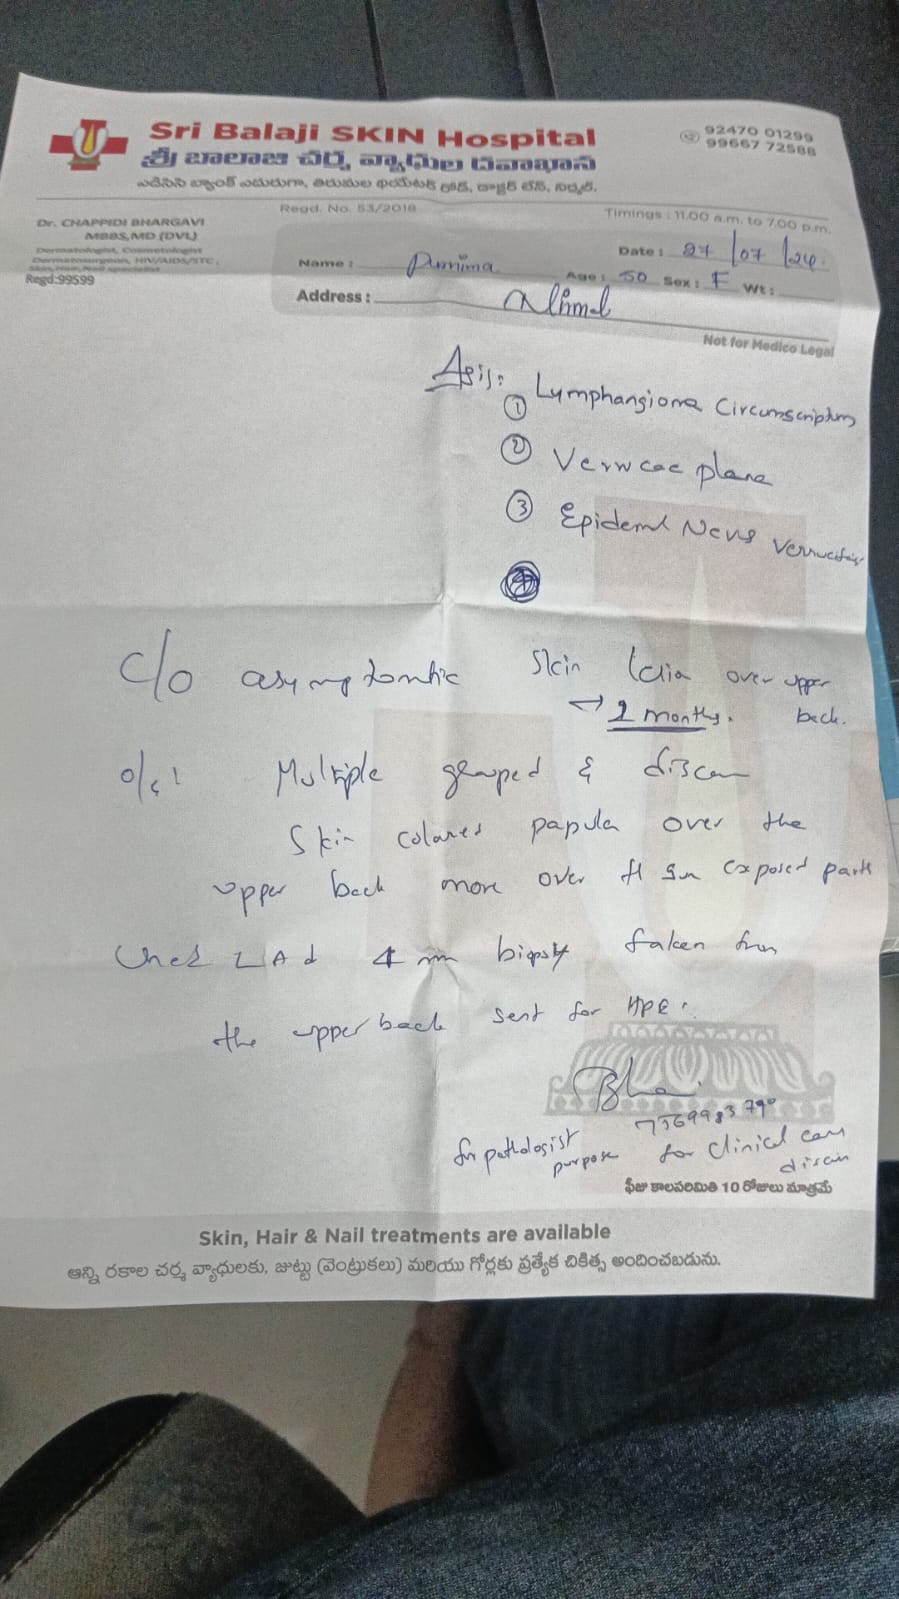 Sri Balaji SKIN Hospital
శ్రీ బాలాజి చర్మ వ్యాధుల దవాఖాన
ఎదురుగా, తిరుమల థియేటర్ రోడ్, డాక్టర్ లేన్, నిర్మల్.
92470 01299
99667 72588
Regd. No. 53/2018
Timings : 11.00 a.m. to 7.00 p.m.
Dr. CHAPPIDI BHARGAVI
MBBS,MD (DVL)
Dermatologist, Cosmetologist
Dermatosurgeon, HIV/AIDS/STC,
Skin, Hair, Nail specialist
Regd:99599
Date : 27/07/24.
Name : Purnima Age : 50 Sex : F Wt :
Address :
Not for Medico Legal
① Lymphangioma Circumscriptum
② Verrucae plana
③ Epidermal Nevus
c/o asymptomatic skin over upper back.
→ 2 months.
o/e: Multiple grouped &
skin colored papules over the
upper back more over sun exposed parts
4 mm biopsy taken from
the upper back sent for HPE.
for pathologist purpose for clinical
ఫీజు కాలపరిమితి 10 రోజులు మాత్రమే
Skin, Hair & Nail treatments are available
అన్ని రకాల చర్మ వ్యాధులకు, జుట్టు (వెంట్రుకలు) మరియు గోర్లకు ప్రత్యేక చికిత్స అందించబడును.